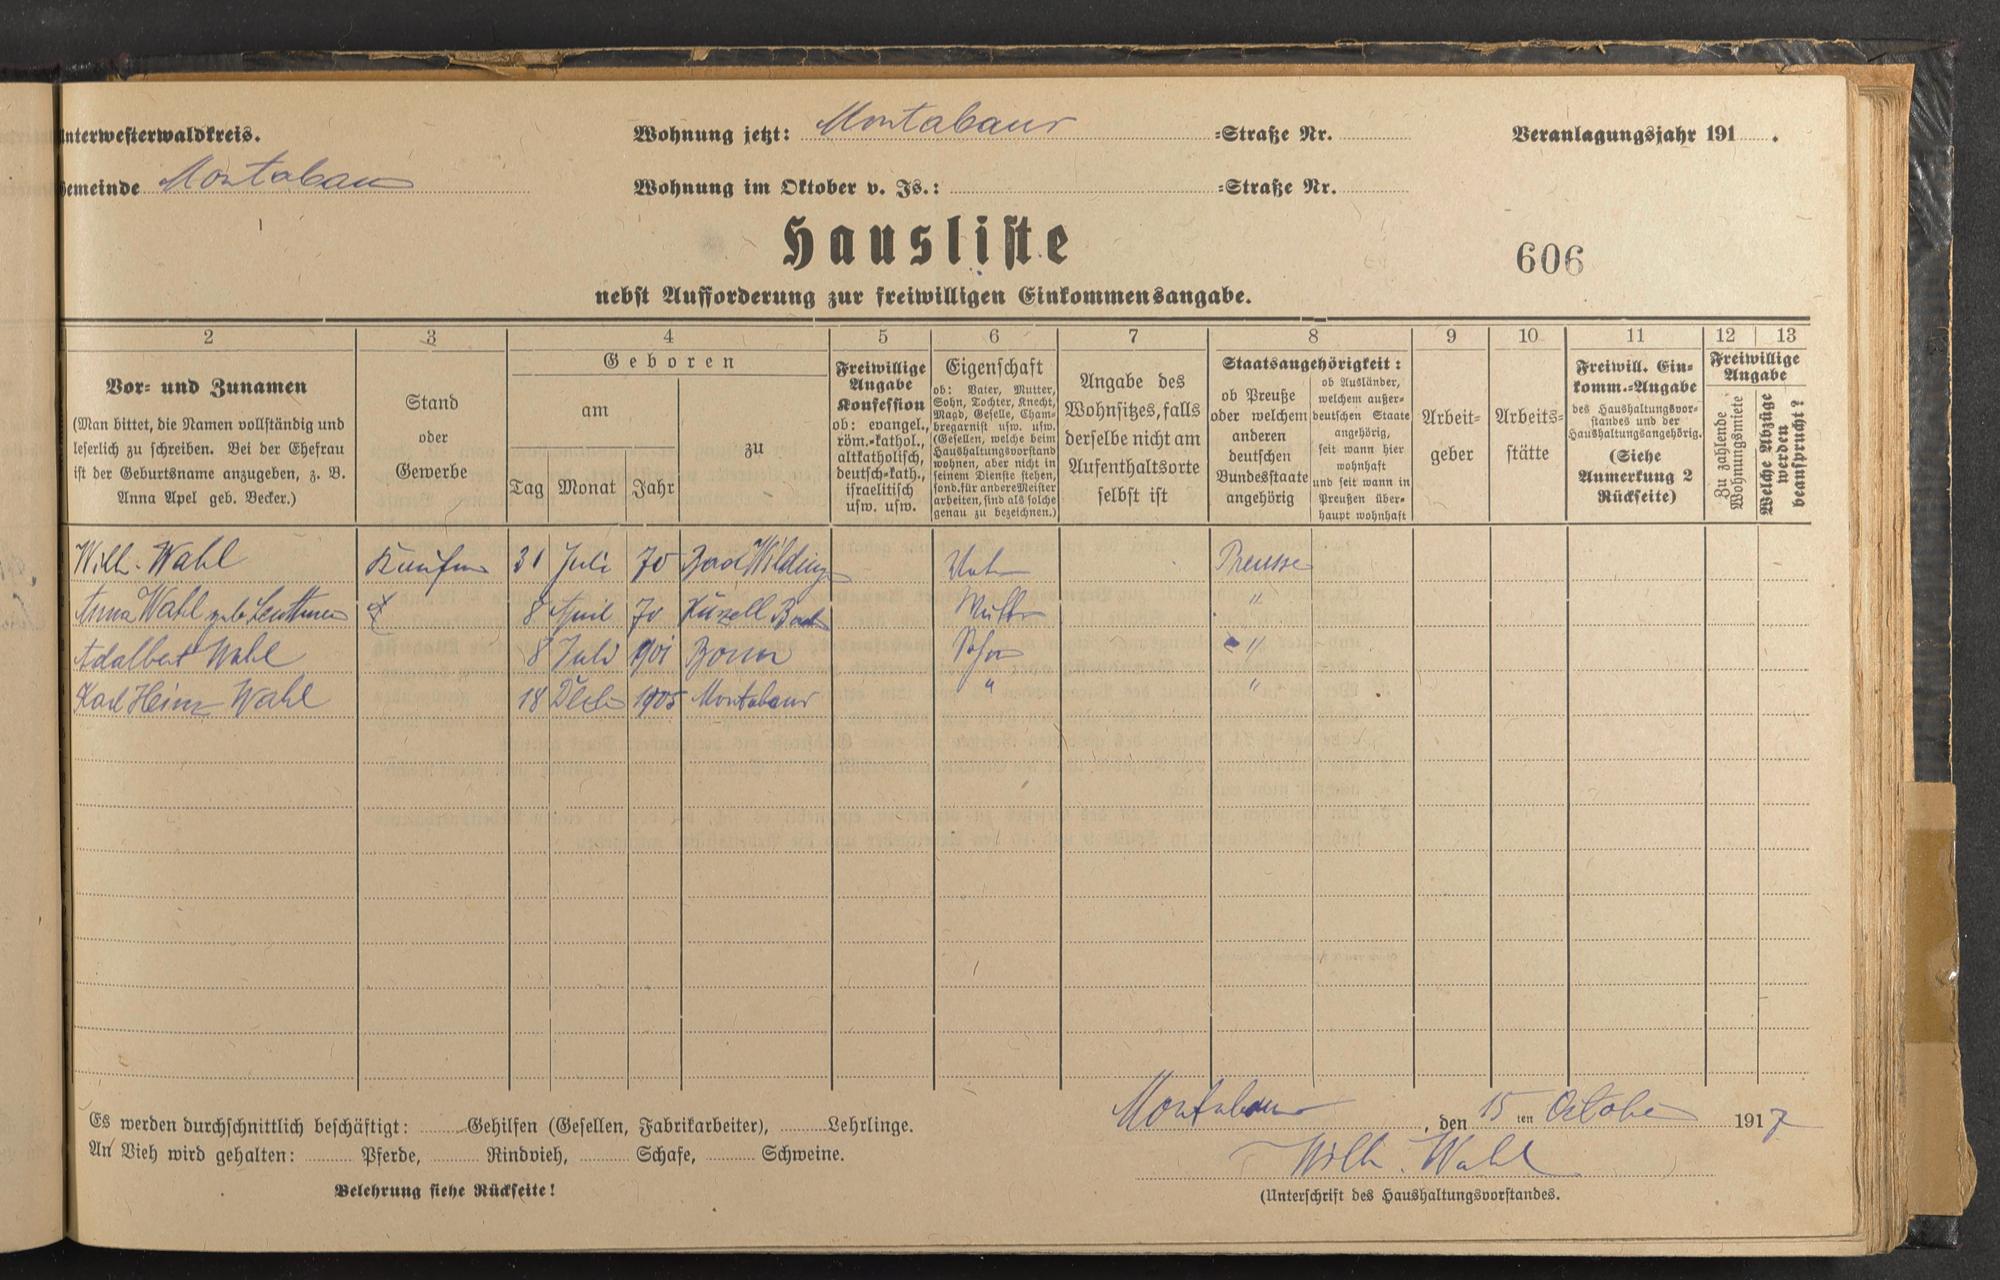 Unterwesterwaldkreis.
Wohnung jetzt: Montabaur =Straße Nr.
Veranlagungsjahr 191 .
Gemeinde Montabaur
Wohnung im Oktober v. Js.: =Straße Nr.
Hausliste
606
nebst Aufforderung zur freiwilligen Einkommensangabe.
2 3 4 5 6 7 8 9 10 11 12 13
Vor- und Zunamen
(Man bittet, die Namen vollständig und
leserlich zu schreiben. Bei der Ehefrau
ist der Geburtsname anzugeben, z. B.
Anna Apel geb. Becker.)
Stand
oder
Gewerbe
Geboren
am
Tag Monat Jahr
zu
Freiwillige
Angabe
Konfession
ob: evangel.,
röm.-kathol.,
altkatholisch,
deutsch-kath.,
israelitisch
usw. usw.
Eigenschaft
ob: Vater, Mutter,
Sohn, Tochter, Knecht,
Magd, Geselle, Cham-
bregarnist usw. usw.
(Gesellen, welche beim
Haushaltungsvorstand
wohnen, aber nicht in
seinem Dienste stehen,
sond. für andere Meister
arbeiten, sind als solche
genau zu bezeichnen.)
Angabe des
Wohnsitzes, falls
derselbe nicht am
Aufenthaltsorte
selbst ist
Staatsangehörigkeit:
ob Preuße
oder welchem
anderen
deutschen
Bundesstaate
angehörig
ob Ausländer,
welchem außer-
deutschen Staate
angehörig,
seit wann hier
wohnhaft
und seit wann in
Preußen über-
haupt wohnhaft
Arbeit-
geber
Arbeits-
stätte
Freiwill. Ein-
komm.-Angabe
des Haushaltungsvor-
standes und der
Haushaltungsangehörig.
(Siehe
Anmerkung 2
Rückseite)
Freiwillige
Angabe
Zu zahlende
Wohnungsmiete
Welche Abzüge
werden
beansprucht?
Wilh. Wahl Kaufm 31 Juli 70 Bad Wildung Vater Preusse
Anna Wahl geb. 8 April 70 Mutter "
Adalbert Wahl 8 Juli 1901 Bonn Sohn "
Karl Heinz Wahl 18 Dech 1905 Montabaur " "
Es werden durchschnittlich beschäftigt: Gehilfen (Gesellen, Fabrikarbeiter), Lehrlinge.
An Vieh wird gehalten: Pferde, Rindvieh, Schafe, Schweine.
Belehrung siehe Rückseite!
Montabaur, den 15 ten October 1917
Wilh. Wahl
(Unterschrift des Haushaltungsvorstandes.